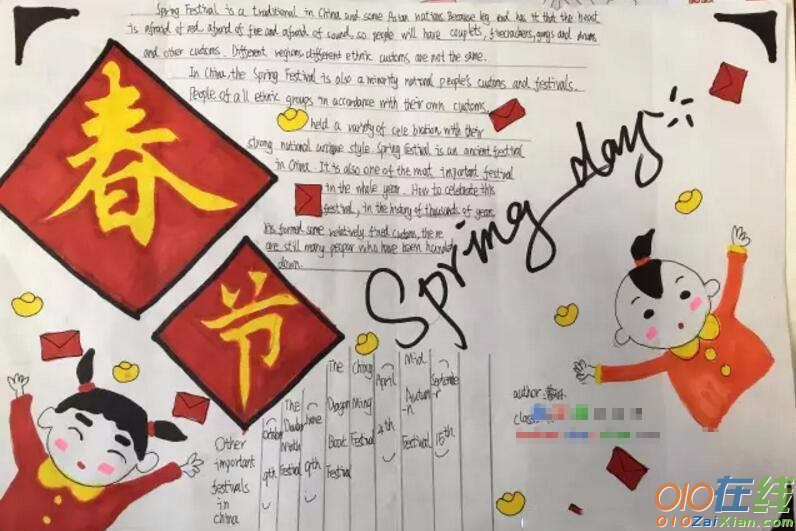 Spring Festival is a traditional in China and some Asian nations. Because leg end has it that the beast
is afraid of red, afraid of fire and afraid of sound, so people will have couplets, firecrackers, gongs and drums
and other customs. Different regions different ethnic customs are not the same.
In China, the Spring Festival is also a minority national people's customs and festivals.
People of all ethnic groups in accordance with their own customs,
held a variety of cele bration with their
strong national unique style. Spring Festival is an ancient festival
in China. It is also one of the most important festival
in the whole year. How to celebrate this
festival, in the history of thousands of years,
has formed some relatively fixed customs, there
are still many people who have been handed
down.
春
节
Spring day
Other
important
festivals
in
china
October
9th
The
Double
Ninth
Festival
June
9th
The
Dragon
Boat
Festival
Ching
Ming
Festival
April
4th
Mid
Autum
-n
Festival
Septembe
-r
15th
author:
class:
010在线
010ZaiXian.com